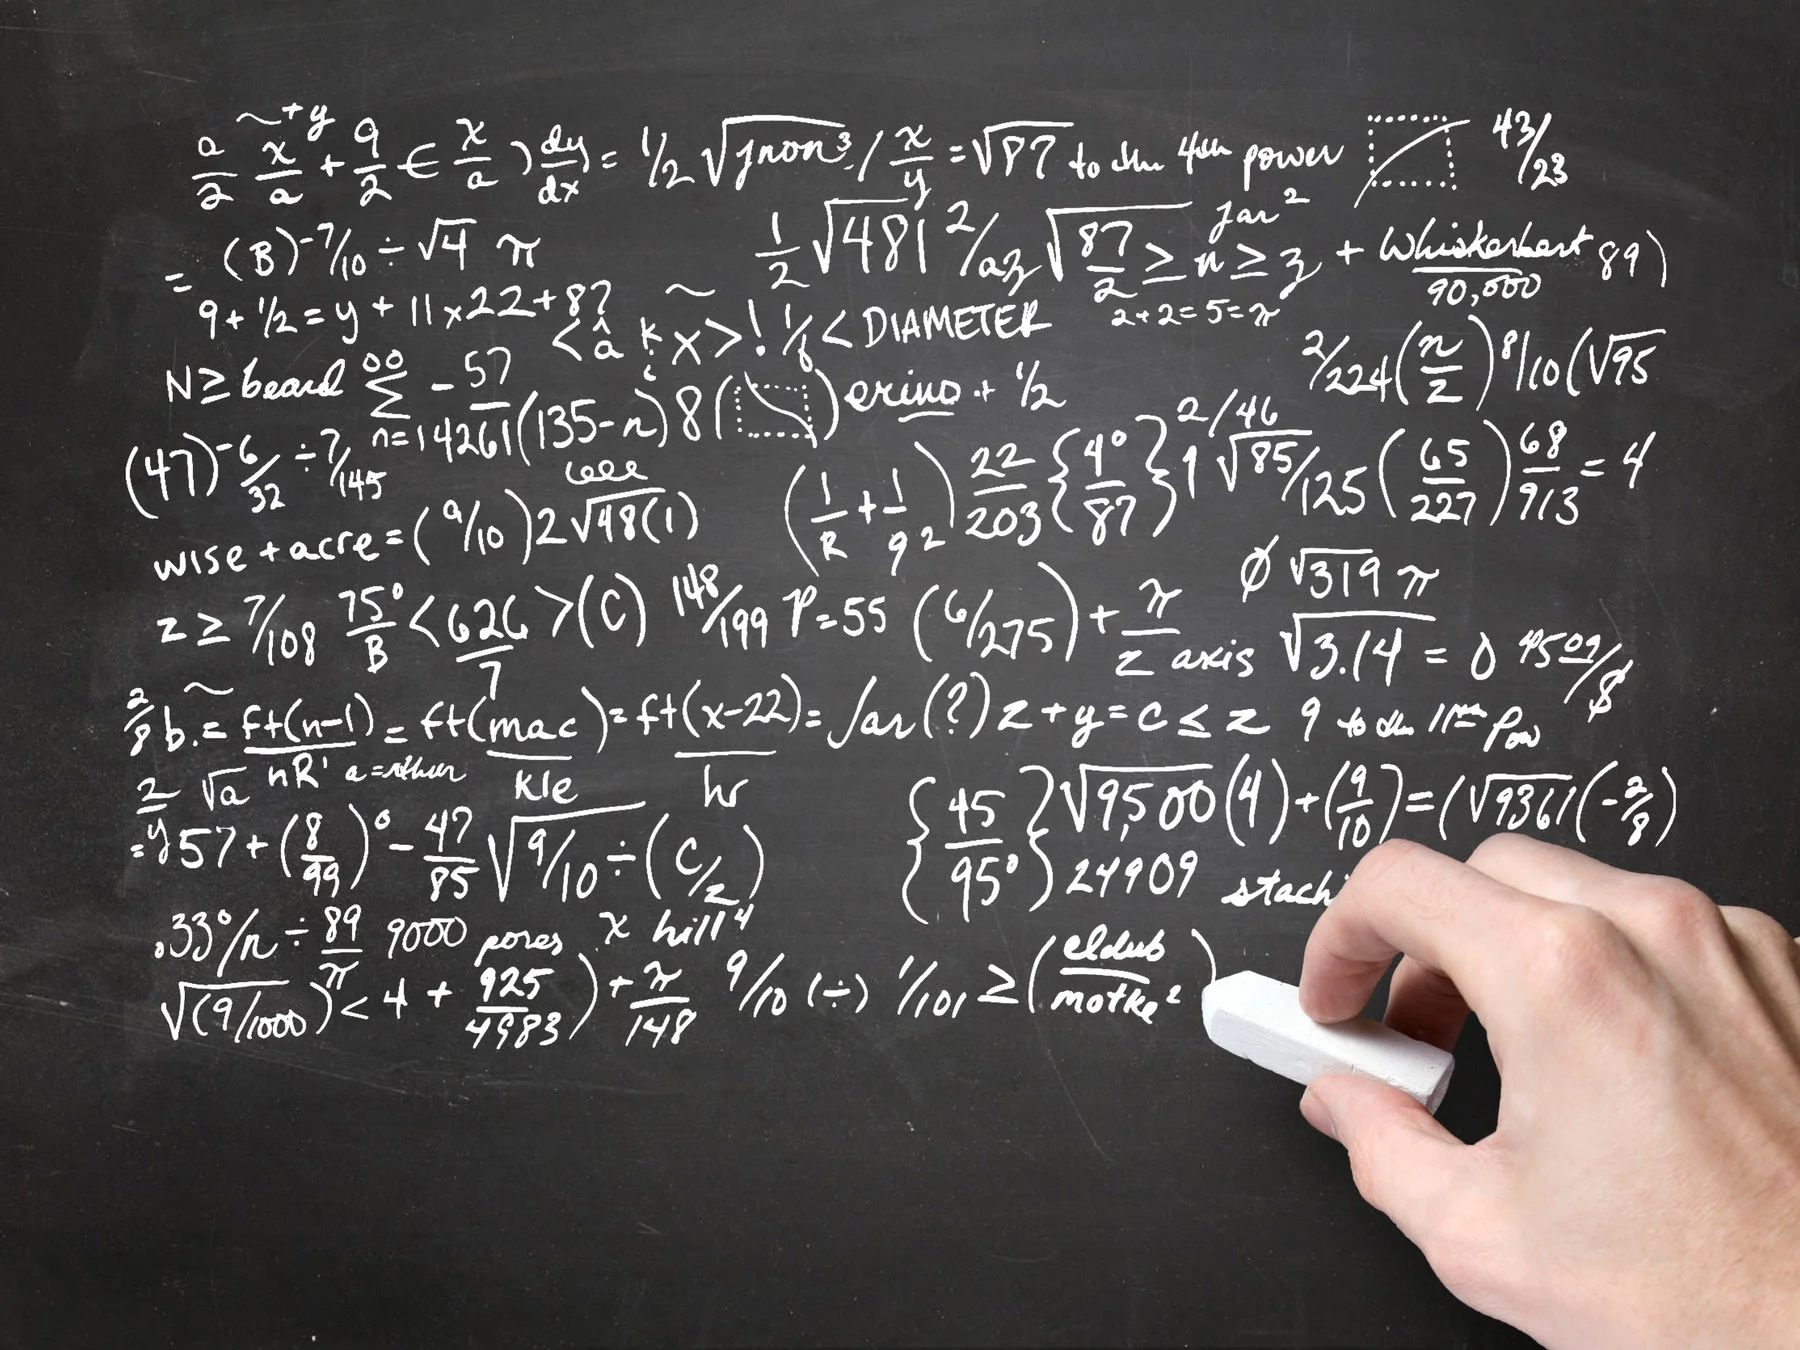 a/2 x/a ~+y + 9/2 -∈ x/a ) dy/dx = 1/2 √jnon³ / x/y = √87 to the 4th power 43/23
= (B)^-7/10 ÷ √4 π 1/2 √481 2/az √87/2 ≥ n ≥ z jar² + 89)
90,000
9 + 1/2 = y + 11 x 22 + 87 2+2=5=π
< â k x > ! 1/8 < DIAMETER
N ≥ beard ∞ Σ n=14261 -57 (135-n) 8 ( ) erino + 1/2 2/224 (n/z) 8/10 (√95
(47)^-6/32 ÷ 7/145 (1/R + 1/9²) 22/203 {4°/87} 2/46 1 √85/125 (65/227) 68/913 = 4
wise + acre = (9/10) 2√48(1) ø √319 π
z ≥ 7/108 75°/B < 626/7 > (C) 148/199 P=55 (6/275) + π/z axis √3.14 = 0 4509/$
2/8 b. = ft(n-1)/nR' = ft(mac/kle) = ft(x-22)/hr = Jar(?) z + y = c ≤ z 9 to the 11th pow
2/y √a
= 57 + (8/99)° - 47/85 √9/10 ÷ (c/z) {45/95°} √9,500 (4) + (9/10) = (√9361 (-2/8)
24909 stach
.33°/n ÷ 89/π 9000 pores x hill⁴
√(9/1000) < 4 + 925/4983) + π/148 9/10 (÷) 1/101 ≥ (eldub/motke²)